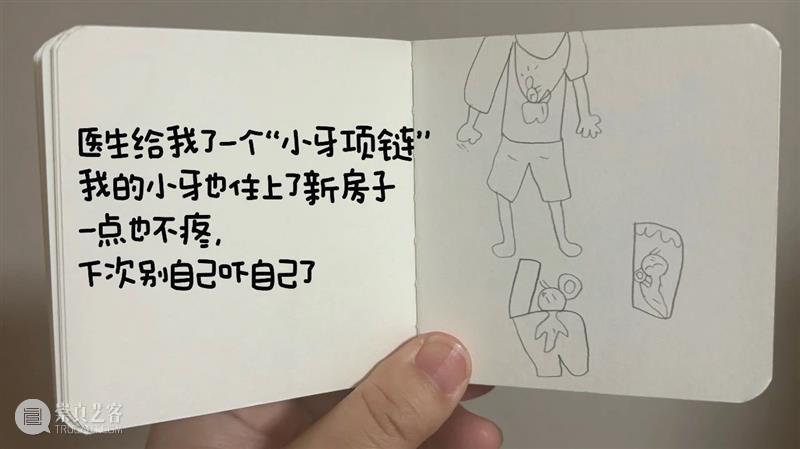 医生给我了一个“小牙项链”
我的小牙也住上了新房子
一点也不疼，
下次别自己吓自己了
崇真艺客